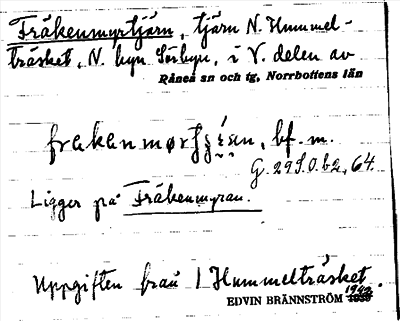 Fräkenmyrtjärn, tjärn N. Hummel-
träsket, N. byn Sörbyn, i V. delen av
Råneå sn och tg, Norrbottens län
bf. m.
G. 29 S.O. b 2, 64.
Ligger på Fräkenmyran.
Uppgiften från 1 Hummelträsket.
EDVIN BRÄNNSTRÖM 1942